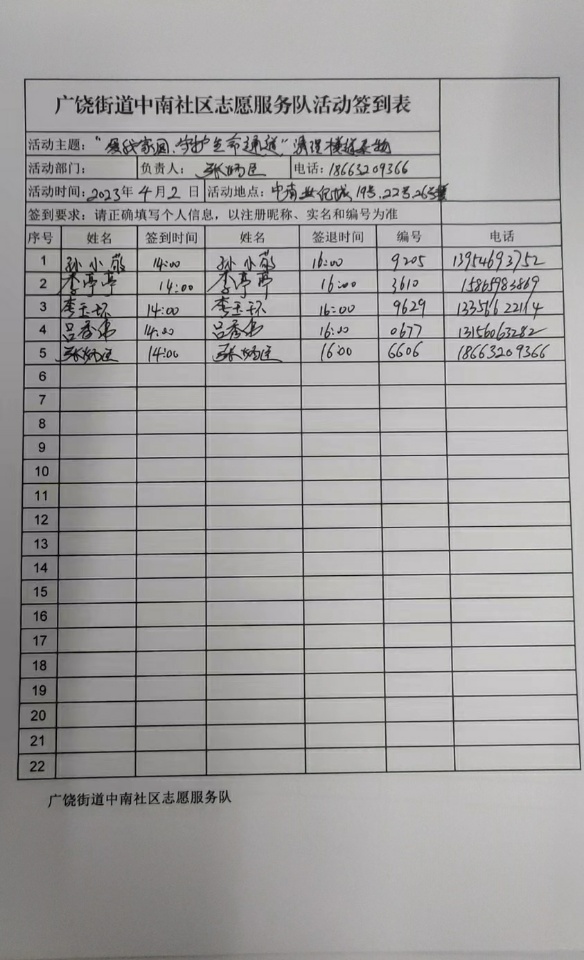 广饶街道中南社区志愿服务队活动签到表
活动主题：“ 家园 守护生命通道”清理楼道杂物
活动部门： 负责人： 电话：18663209366
活动时间：2023年4月2日 活动地点：中南世纪城19号.22号.26号楼
签到要求：请正确填写个人信息，以注册昵称、实名和编号为准
序号 姓名 签到时间 姓名 签退时间 编号 电话
1 孙小 14:00 孙小 16:00 9205 13954693752
2 李亭亭 14:00 李亭亭 16:00 3610 15865983869
3 李玉环 14:00 李玉环 16:00 9629
4 吕秀伟 14:00 吕秀伟 16:00 0677 13156063282
5 14:00 16:00 6606 18663209366
6
7
8
9
10
11
12
13
14
15
16
17
18
19
20
21
22
广饶街道中南社区志愿服务队